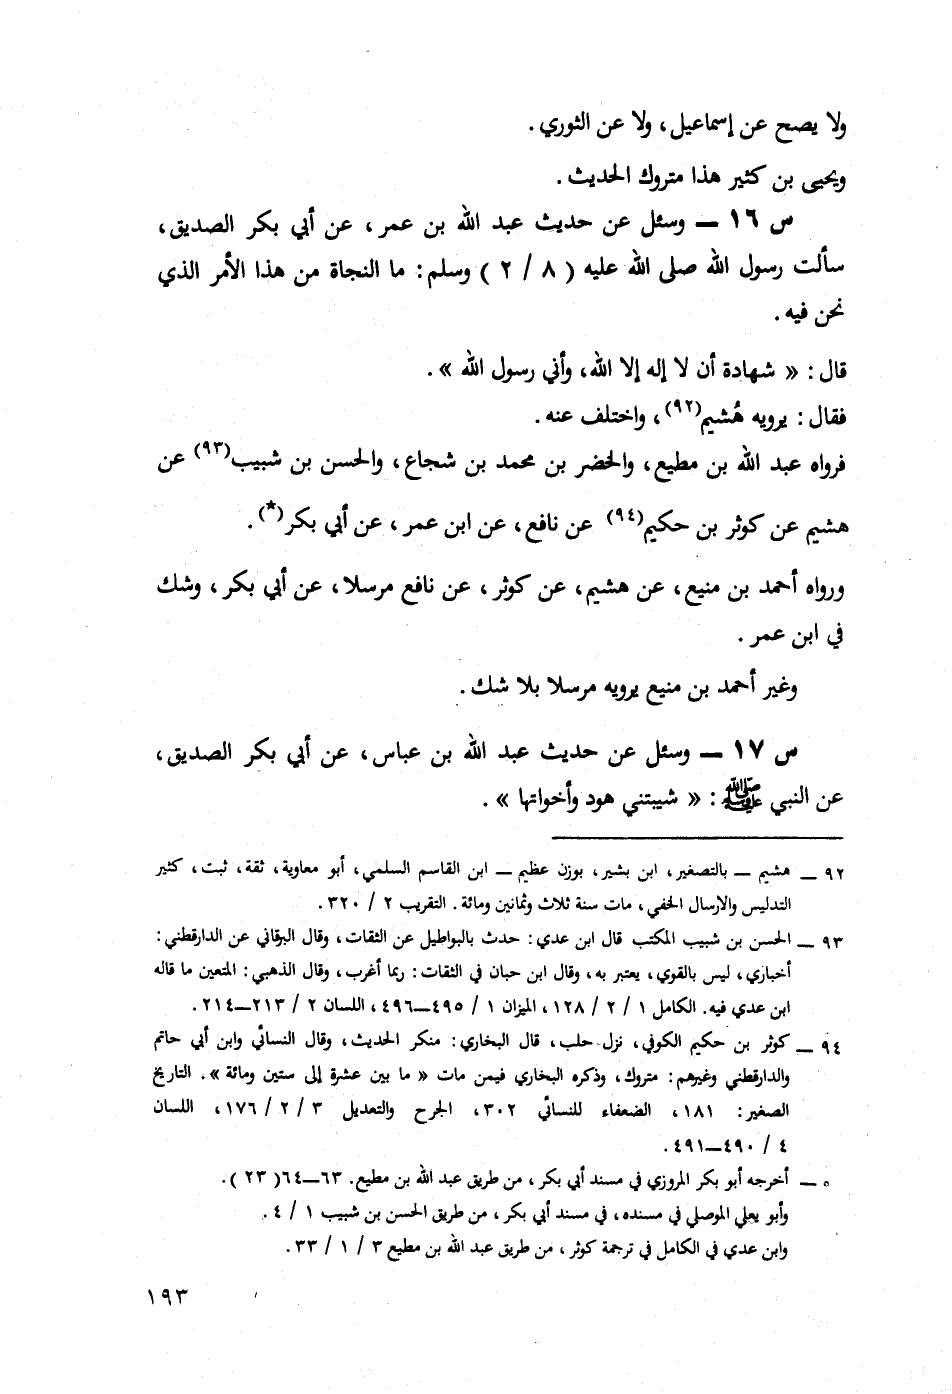 ولا يصح عن إسماعيل، ولا عن الثوري.
ويحيى بن كثير هذا متروك الحديث.
س ١٦ — وسئل عن حديث عبد الله بن عمر، عن أبي بكر الصديق،
سألت رسول الله صلى الله عليه ( ٨ / ٢ ) وسلم: ما النجاة من هذا الأمر الذي
نحن فيه.
قال: « شهادة أن لا إله إلا الله، وأني رسول الله ».
فقال: يرويه هُشيم(٩٢)، واختلف عنه.
فرواه عبد الله بن مطيع، والخضر بن محمد بن شجاع، والحسن بن شبيب(٩٣) عن
هشيم عن كوثر بن حكيم(٩٤) عن نافع، عن ابن عمر، عن أبي بكر(*).
ورواه أحمد بن منيع، عن هشيم، عن كوثر، عن نافع مرسلا، عن أبي بكر، وشك
في ابن عمر.
وغير أحمد بن منيع يرويه مرسلا بلا شك.
س ١٧ — وسئل عن حديث عبد الله بن عباس، عن أبي بكر الصديق،
عن النبي ﷺ: « شيبتني هود وأخواتها ».
٩٢ — هشيم — بالتصغير، ابن بشير، بوزن عظيم — ابن القاسم السلمي، أبو معاوية، ثقة، ثبت، كثير
التدليس والارسال الخفي، مات سنة ثلاث وثمانين ومائة. التقريب ٢ / ٣٢٠.
٩٣ — الحسن بن شبيب المكتب قال ابن عدي: حدث بالبواطيل عن الثقات، وقال البرقاني عن الدارقطني:
أخباري، ليس بالقوي، يعتبر به، وقال ابن حبان في الثقات: ربما أغرب، وقال الذهبي: المتعين ما قاله
ابن عدي فيه. الكامل ١ / ٢ / ١٢٨، الميزان ١ / ٤٩٥—٤٩٦، اللسان ٢ / ٢١٣—٢١٤.
٩٤ — كوثر بن حكيم الكوفي، نزل حلب، قال البخاري: منكر الحديث، وقال النسائي وابن أبي حاتم
والدارقطني وغيرهم: متروك، وذكره البخاري فيمن مات « ما بين عشرة إلى ستين ومائة ». التاريخ
الصغير: ١٨١، الضعفاء للنسائي ٣٠٢، الجرح والتعديل ٣ / ٢ / ١٧٦، اللسان
٤ / ٤٩٠—٤٩١.
° — أخرجه أبو بكر المروزي في مسند أبي بكر، من طريق عبد الله بن مطيع. ٦٣—٦٤( ٢٣ ).
وأبو يعلي الموصلي في مسنده، في مسند أبي بكر، من طريق الحسن بن شبيب ١ / ٤.
وابن عدي في الكامل في ترجمة كوثر، من طريق عبد الله بن مطيع ٣ / ١ / ٣٣.
١٩٣